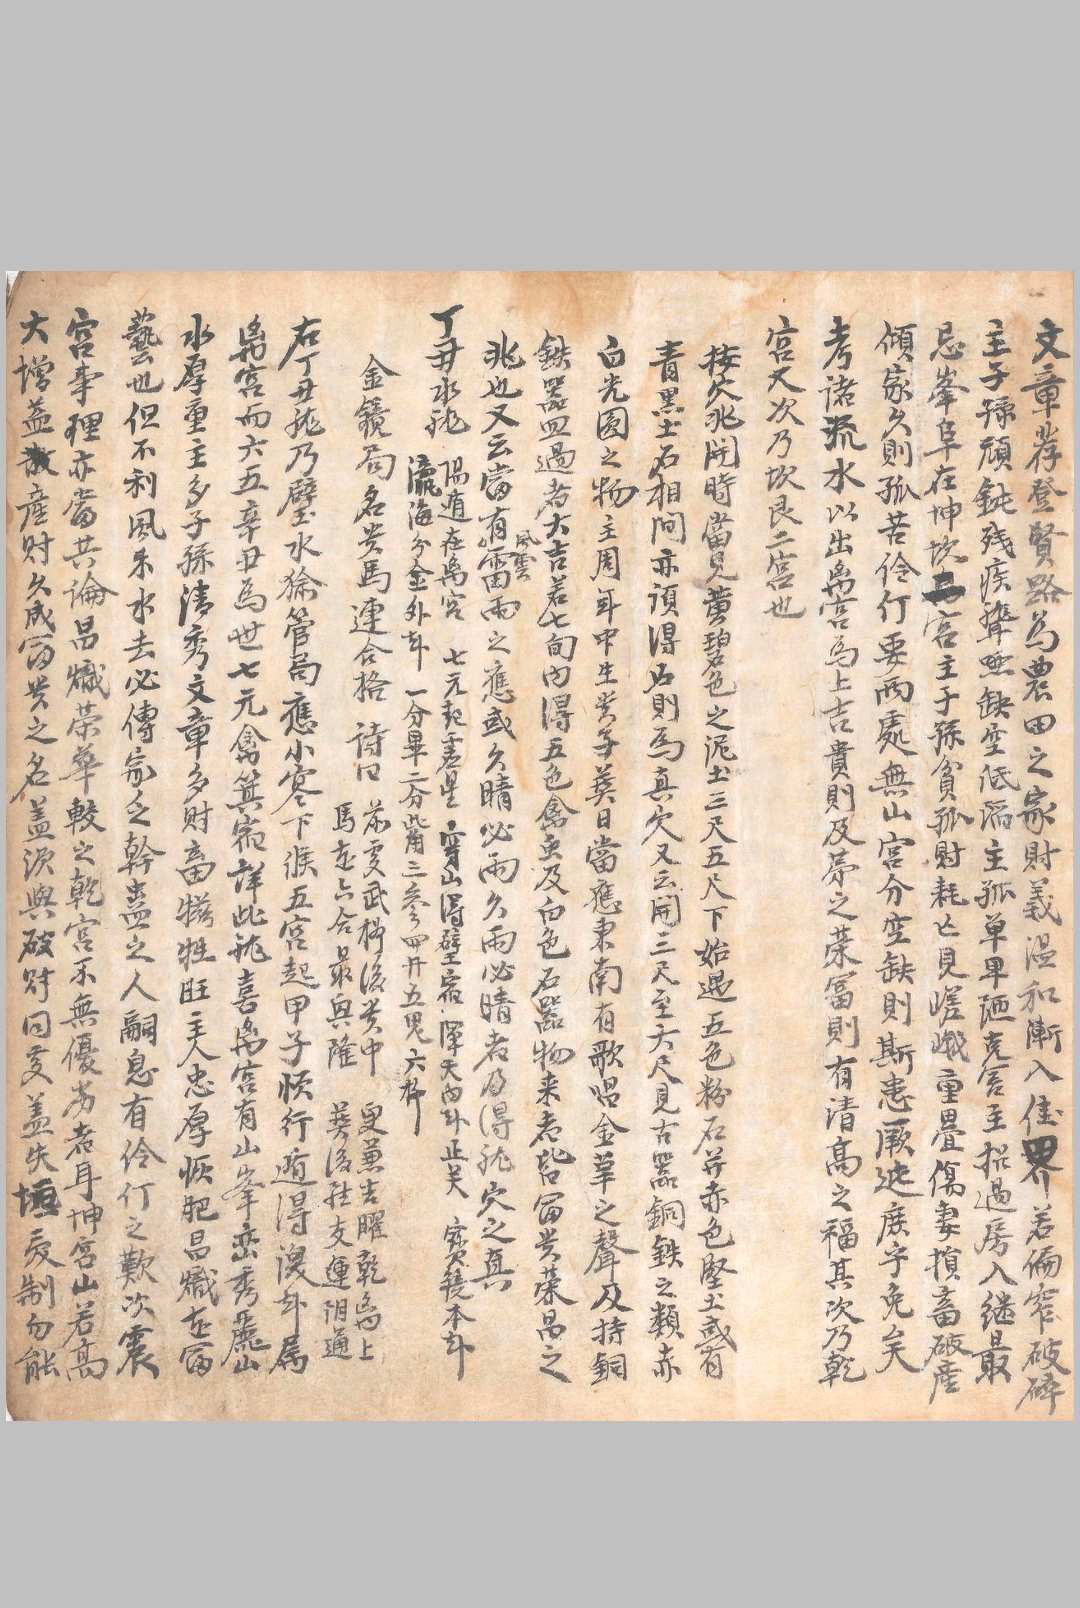 文章荐登賢路為農田之家財義温和漸入佳界若偏窄破碎
主子孫頑鈍残疾聾啞缺空低陥主孤單卑陋尅害主招過房入継最
忌峯阜在坤坎二宮主子孫貧孤財耗亡見嵯峨重疊傷妻損畜破産
傾家久則孤苦伶仃要兩處無山宮分空缺則斯患厥逃庶字免矣
考諸流水以出离宮為上吉貴則及第之荣富則有清高之福其次乃乾
宮又次乃坎艮二宮也
按穴兆開時當見黄碧色之泥土三尺五尺下始遇五色粉石并赤色堅土或有
青黒土石相间亦須得石則為真穴又云開三尺至六尺見古器銅鉄之類赤
白光圓之物主周年中生贵子葵日當應東南有歌唱金革之聲及持銅
鉄器皿過者大吉若七旬内得五色禽魚及白色石器物来者皆富贵荣昌之
兆也又云當有風雲雷雨之應或久晴必雨久雨必晴者乃得龍穴之真
丁丑水龍 陽遁在离宮 七元起虚星 穿山得壁宿 渾天内卦正关 寳鏡本卦
瀛海分金外卦 一分畢二分觜三參四井五鬼六柳
金鏡局 名贵馬連合格 詩曰 前雯武柳後贵中 更兼吉曜乾离上
馬走六合最興隆 葵後胜支運用通
右丁丑龍乃壁水㺄管局應小寒下候五宮起甲子順行遁得渙卦属
离宮而六五辛丑為世七元禽箕宿詳此龍喜离宮有山峯峦秀麗山
水厚重主多子孫清秀文章多財畜犠牲旺主人忠厚恢肥昌熾在富
藝也但不利風来水去必傳家之幹蠱之人嗣息有伶仃之歎次震
宮事理亦當共論昌熾荣華較之乾宮不無優劣者耳坤宮山若高
大增益散産財久成富贵之名盖須與破財同爻盖失垣受制勿能